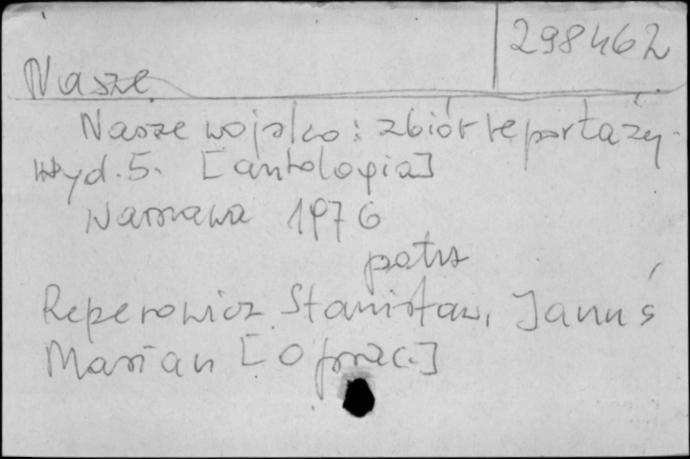 298462
Nasze
Nasze wojsko: zbiór reportaży.
wyd. 5. [antologia]
Warszawa 1976
patrz
Reperowicz Stanisław, Januś
Marian [oprac.]